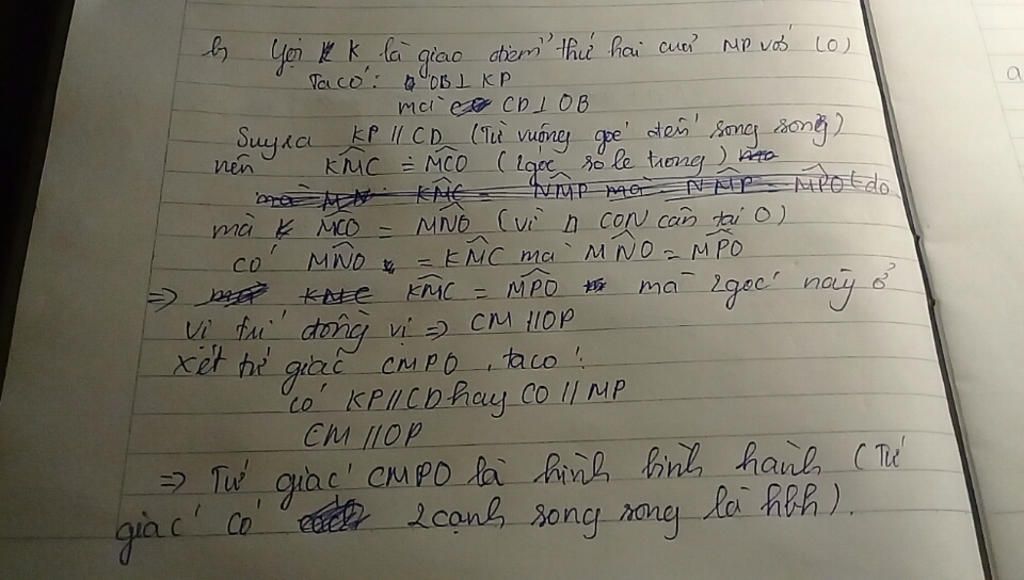 b, Gọi K là giao điểm thứ hai cuả MP với (O)
Ta có: OB⊥KP
mà CD⊥OB
Suy ra KP//CD (Từ vuông góc đến song song)
nên \widehat{KMC} = \widehat{MCO} (2góc so le trong)
mà \widehat{MCO} = \widehat{MNO} (vì Δ CON cân tại O)
có \widehat{MNO} = \widehat{KMC} mà \widehat{MNO} = \widehat{MPO}
=> \widehat{KMC} = \widehat{MPO} mà 2góc này ở
vị trí đồng vị => CM//OP
xét tứ giác CMPO, ta có:
có KP//CD hay CO//MP
CM//OP
=> Tứ giác CMPO là hình bình hành (Tứ
giác có 2cạnh song song là hbh).
a